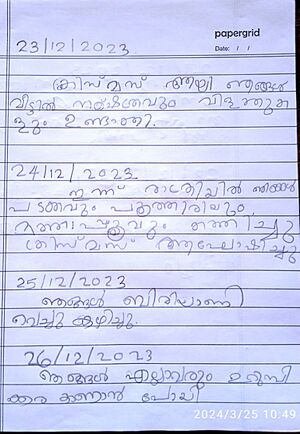 papergrid
Date: / /
23/12/2023
ക്രിസ്മസ് ആയി ഞങ്ങൾ
വീട്ടിൽ നക്ഷത്രവും വിളക്കുക
ളും ഉണ്ടാക്കി.
24/12/2023
ഇന്ന് രാത്രിയിൽ ഞങ്ങൾ
പടക്കവും പൂത്തിരിയും
മത്താപ്പൂവും കത്തിച്ചു
ക്രിസ്മസ് ആഘോഷിച്ചു
25/12/2023
ഞങ്ങൾ ബിരിയാണി
വെച്ചു കഴിച്ചു.
26/12/2023
ഞങ്ങൾ എല്ലാവരും
കാണാൻ പോയി
2024/3/25 10:49